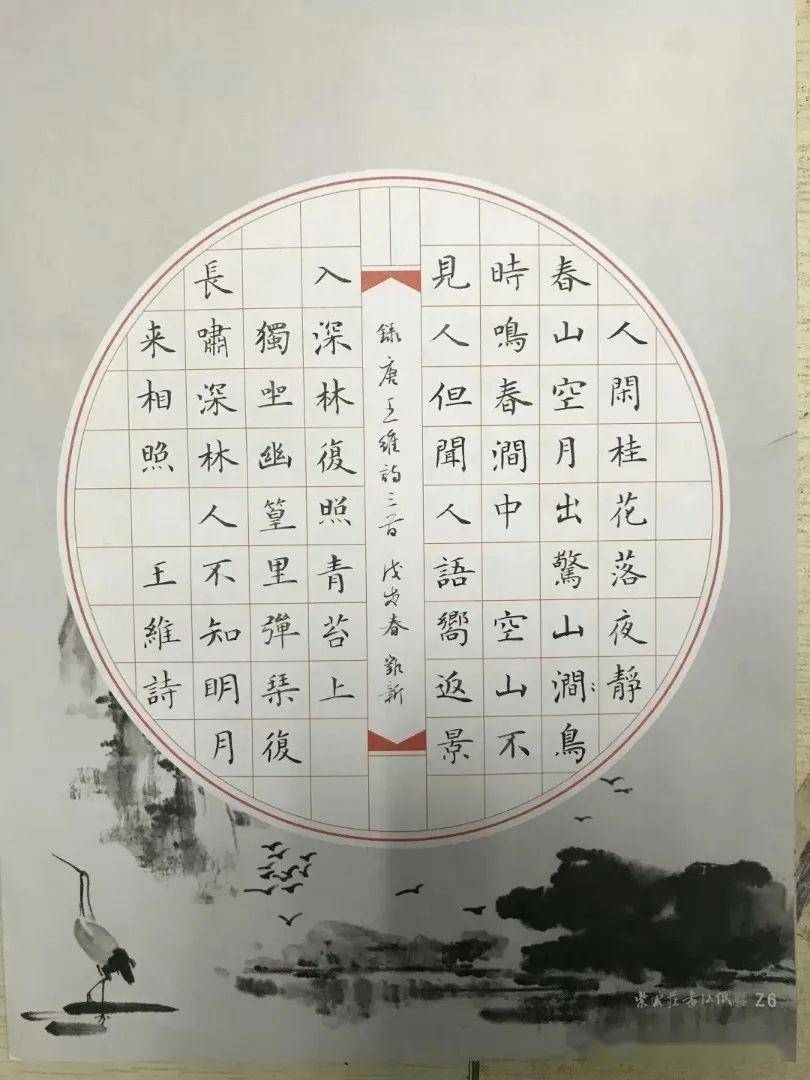 人閑桂花落夜靜
春山空月出驚山澗鳥
時鳴春澗中 空山不
見人但聞人語嚮返景
錄唐王維詩三首 戊戌春 新
入深林復照青苔上
獨坐幽篁里彈琹復
長嘯深林人不知明月
来相照 王維詩
Z6